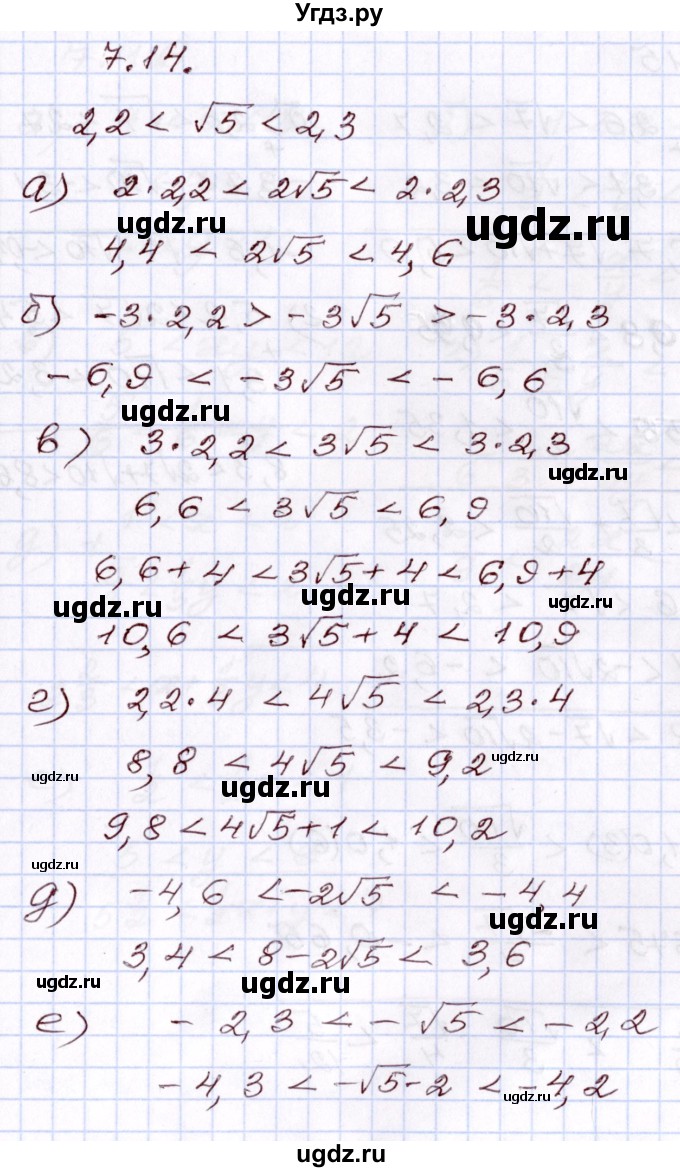 Угдз.ру
7.14.
2,2 < √5 < 2,3
а) 2·2,2 < 2√5 < 2·2,3
ugdz.ru ugdz.ru
4,4 < 2√5 < 4,6
б) -3·2,2 > -3√5 > -3·2,3
-6,9 < -3√5 < -6,6
ugdz.ru
в) 3·2,2 < 3√5 < 3·2,3
ugdz.ru
6,6 < 3√5 < 6,9
6,6+4 < 3√5+4 < 6,9+4
ugdz.ru ugdz.ru ugdz.ru
10,6 < 3√5+4 < 10,9
г) 2,2·4 < 4√5 < 2,3·4
8,8 < 4√5 < 9,2
ugdz.ru ugdz.ru ugdz.ru
9,8 < 4√5+1 < 10,2
ugdz.ru
д) -4,6 < -2√5 < -4,4
ugdz.ru
3,4 < 8-2√5 < 3,6
ugdz.ru ugdz.ru ugdz.ru
е) -2,3 < -√5 < -2,2
-4,3 < -√5-2 < -4,2
ugdz.ru ugdz.ru
ugdz.ru